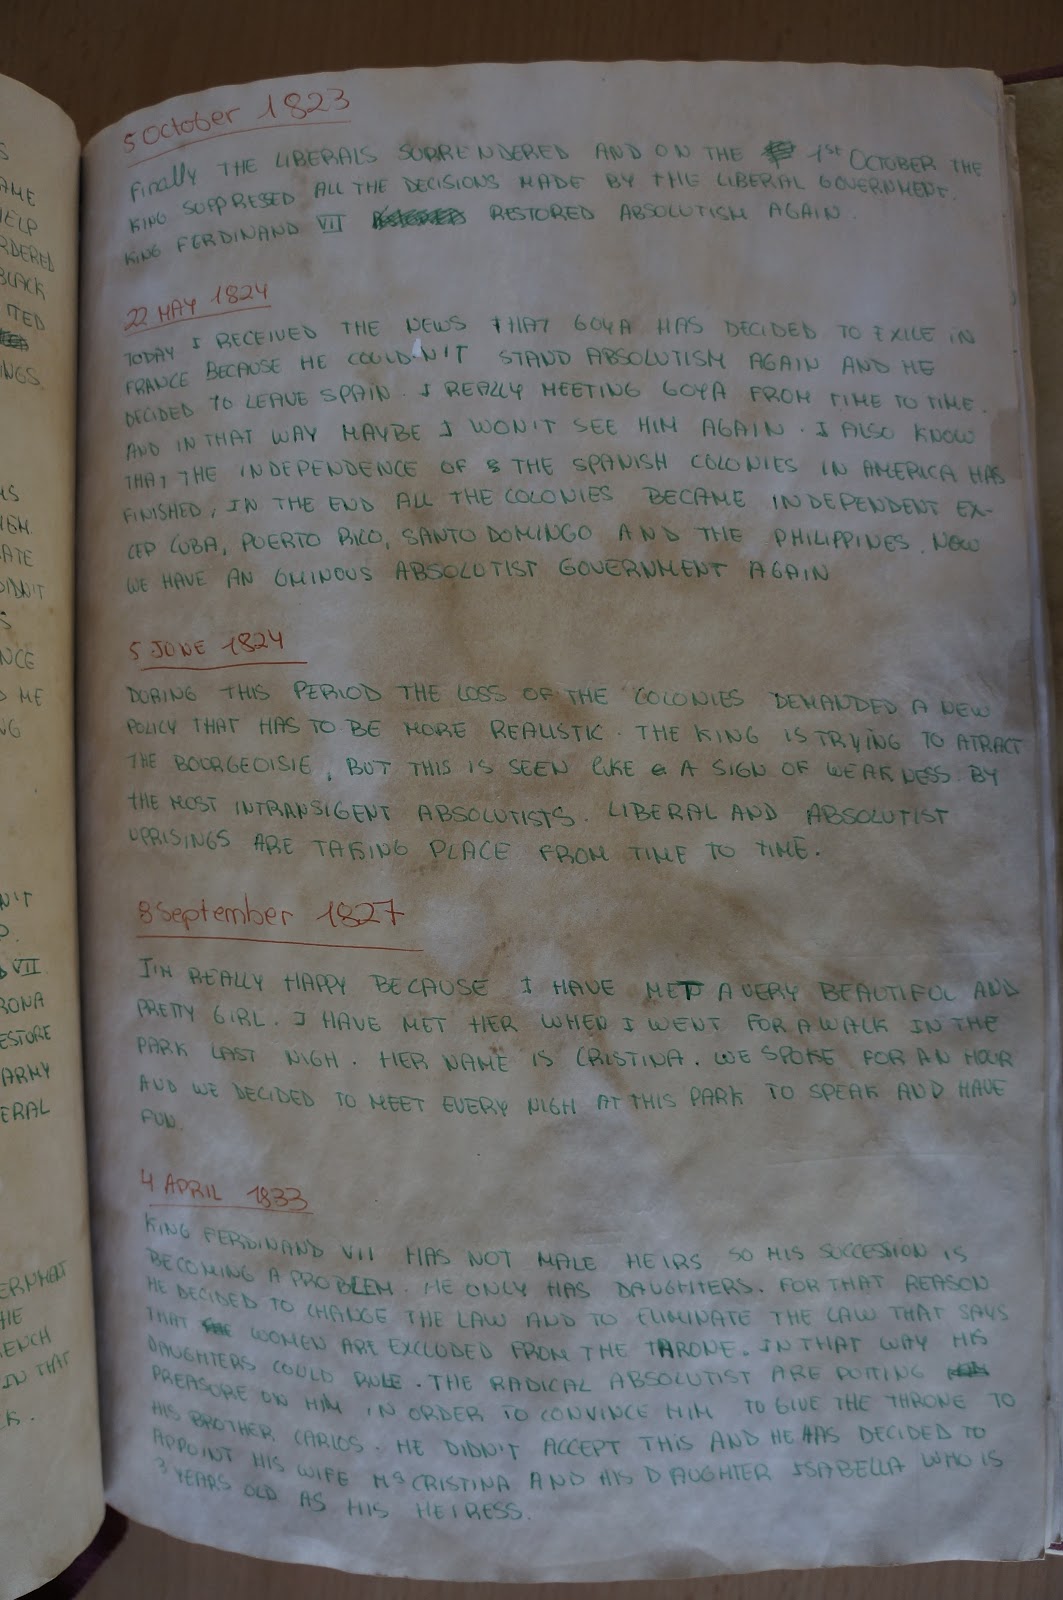 S
AME
HELP
RDERED
BLACK
ITED
INGS.
MS
ATE
DIDN'T
S
NCE
D ME
NG
N'T
D.
VII
RONA
ESTORE
ARMY
ERAL
ERNMENT
HE
ENCH
IN THAT
K.
5 October 1823
Finally THE LIBERALS SURRENDERED AND ON THE 1st OCTOBER THE
KING SUPPRESED ALL THE DECISIONS MADE BY THE LIBERAL GOVERNMENT.
KING FERDINAND VII RESTORED ABSOLUTISM AGAIN.
22 MAY 1824
TODAY I RECEIVED THE NEWS THAT GOYA HAS DECIDED TO EXILE IN
FRANCE BECAUSE HE COULDN'T STAND ABSOLUTISM AGAIN AND HE
DECIDED TO LEAVE SPAIN. I REALLY MEETING GOYA FROM TIME TO TIME.
AND IN THAT WAY MAYBE I WON'T SEE HIM AGAIN. I ALSO KNOW
THAT THE INDEPENDENCE OF THE SPANISH COLONIES IN AMERICA HAS
FINISHED, IN THE END ALL THE COLONIES BECAME INDEPENDENT EX-
CEP CUBA, PUERTO RICO, SANTO DOMINGO AND THE PHILIPPINES. NOW
WE HAVE AN OMINOUS ABSOLUTIST GOVERNMENT AGAIN
5 JUNE 1824
DURING THIS PERIOD THE LOSS OF THE COLONIES DEMANDED A NEW
POLICY THAT HAS TO BE MORE REALISTIC. THE KING IS TRYING TO ATRACT
THE BOURGEOISIE, BUT THIS IS SEEN LIKE A SIGN OF WEAKNESS BY
THE MOST INTRANSIGENT ABSOLUTISTS. LIBERAL AND ABSOLUTIST
UPRISINGS ARE TAKING PLACE FROM TIME TO TIME.
8 September 1827
I'M REALLY HAPPY BECAUSE I HAVE MET A VERY BEAUTIFUL AND
PRETTY GIRL. I HAVE MET HER WHEN I WENT FOR A WALK IN THE
PARK LAST NIGH. HER NAME IS CRISTINA. WE SPOKE FOR AN HOUR
AND WE DECIDED TO MEET EVERY NIGH AT THIS PARK TO SPEAK AND HAVE
FUN.
4 APRIL 1833
KING FERDINAND VII HAS NOT MALE HEIRS SO HIS SUCCESSION IS
BECOMING A PROBLEM. HE ONLY HAS DAUGHTERS. FOR THAT REASON
HE DECIDED TO CHANGE THE LAW AND TO ELIMINATE THE LAW THAT SAYS
THAT WOMEN ARE EXCLUDED FROM THE TARONE. IN THAT WAY HIS
DAUGHTERS COULD RULE. THE RADICAL ABSOLUTIST ARE PUTTING
PREASURE ON HIM IN ORDER TO CONVINCE HIM TO GIVE THE THRONE TO
HIS BROTHER, CARLOS. HE DIDN'T ACCEPT THIS AND HE HAS DECIDED TO
APPOINT HIS WIFE Mª CRISTINA AND HIS DAUGHTER ISABELLA WHO IS
3 YEARS OLD AS HIS HEIRESS.